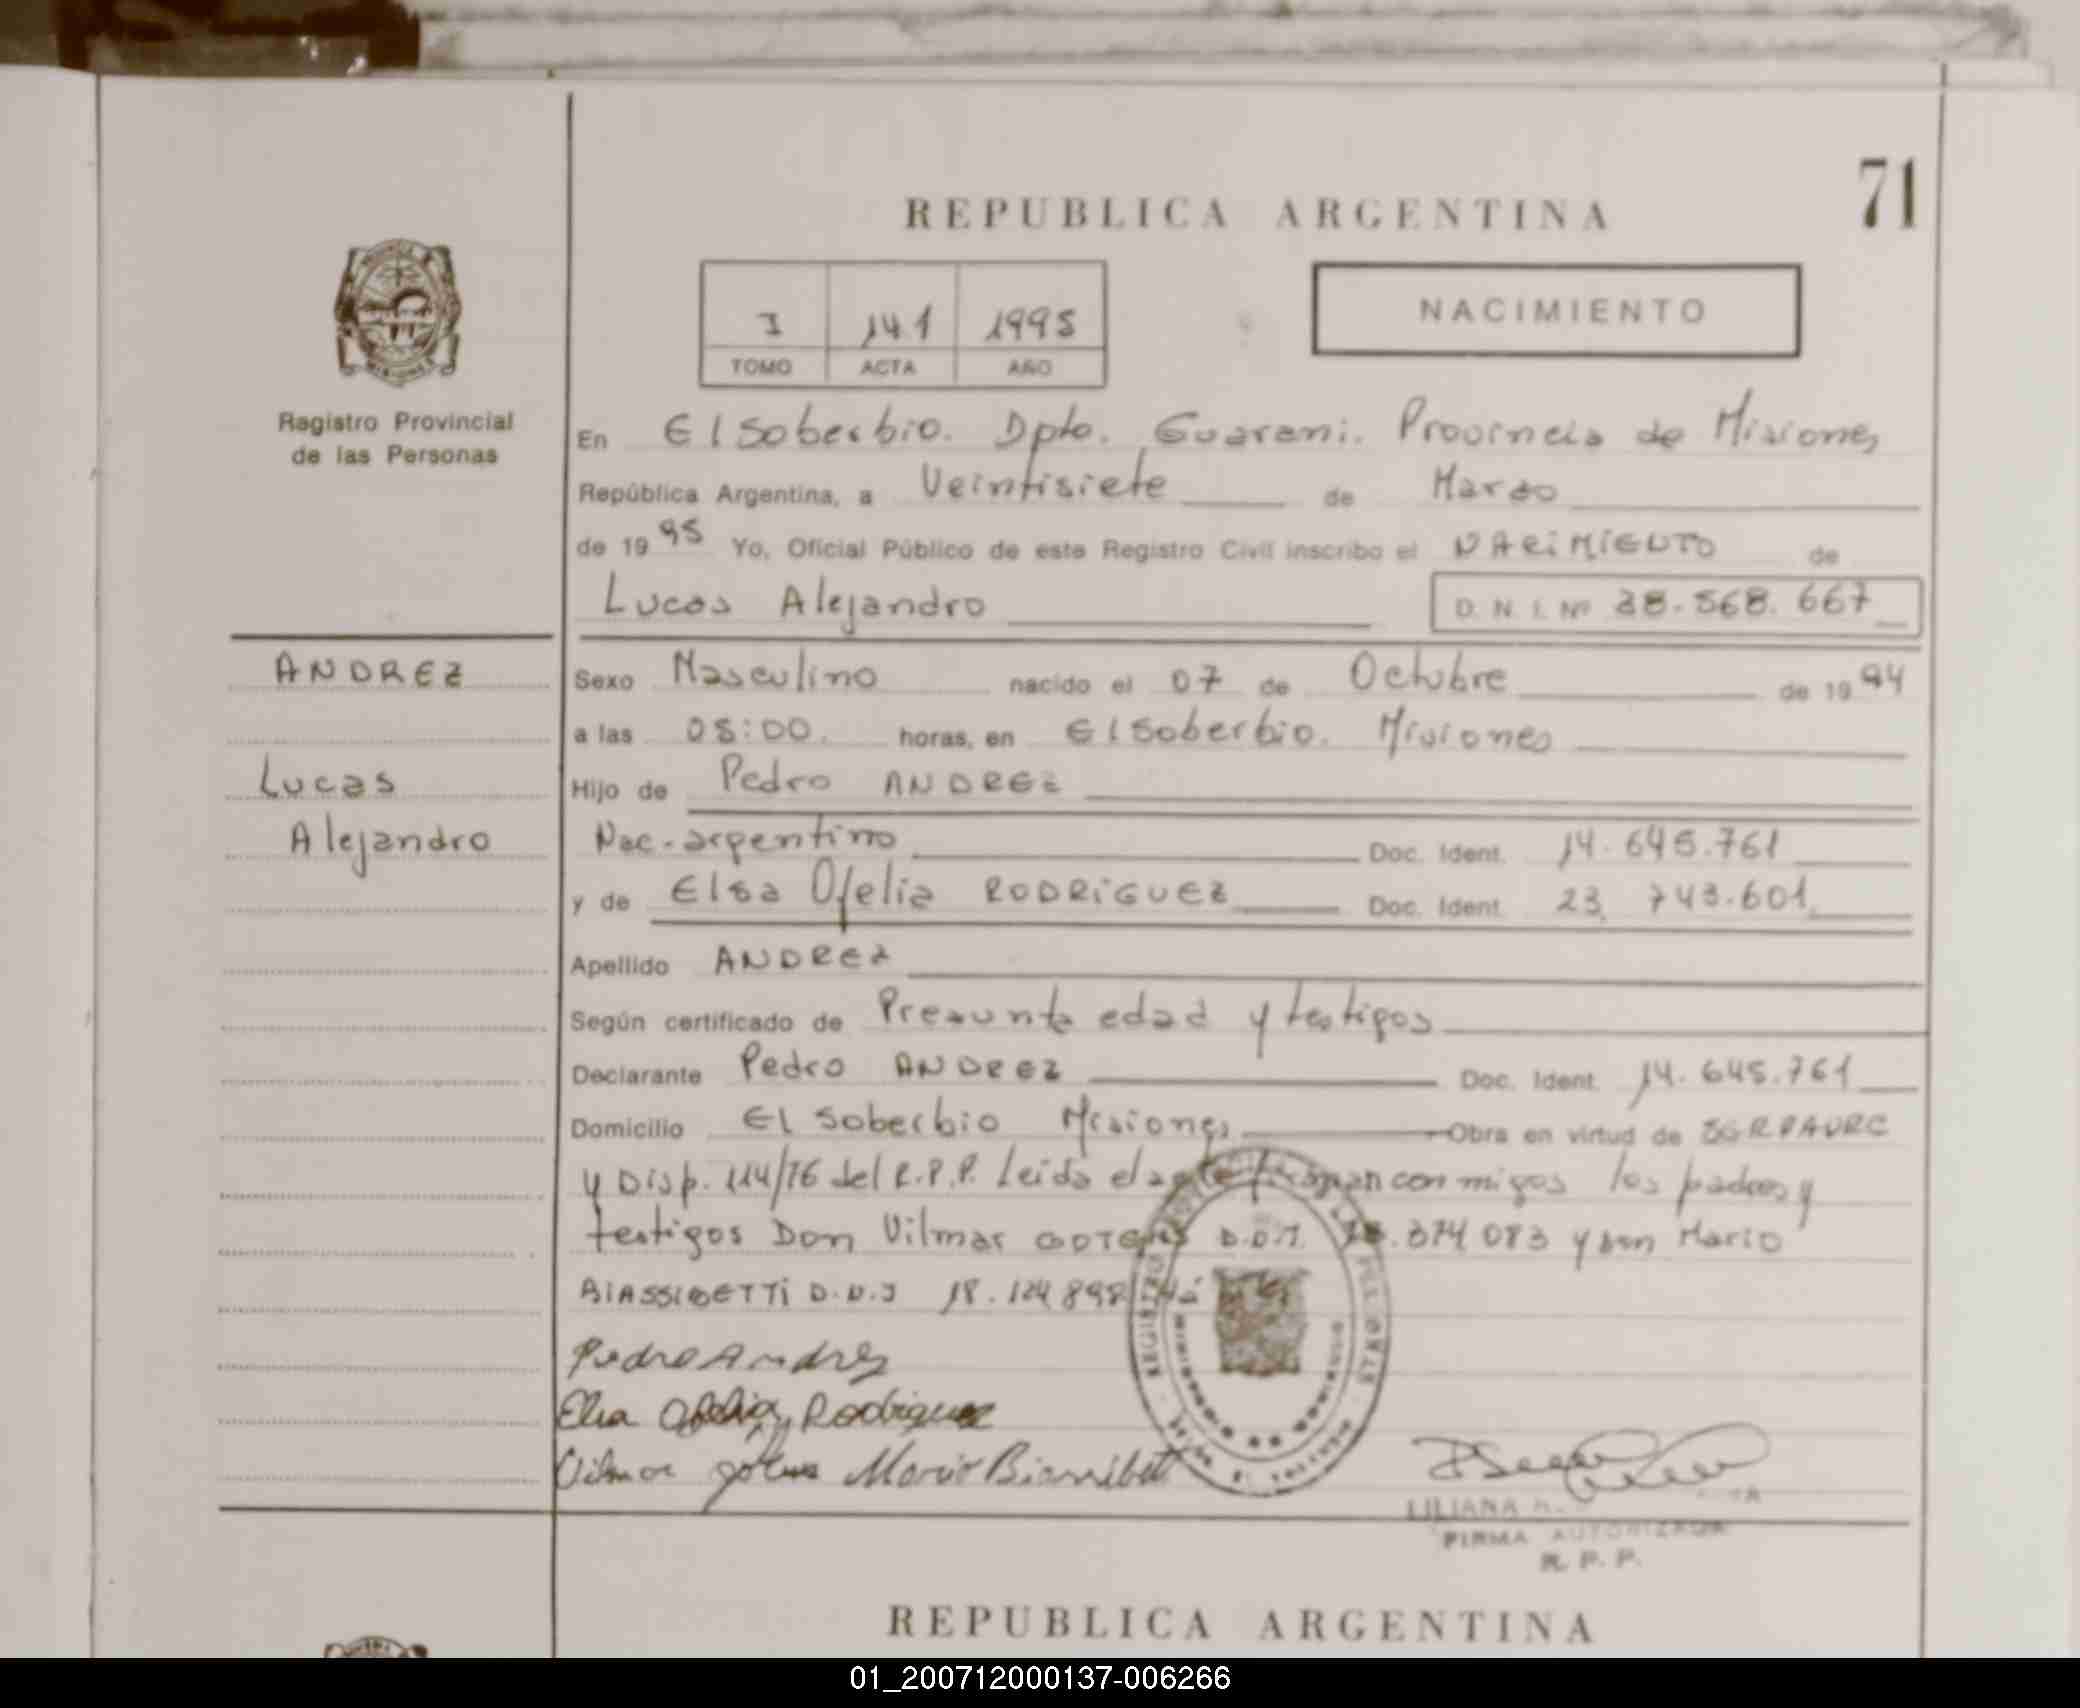 71
REPUBLICA ARGENTINA
I 141 1995
TOMO ACTA AÑO
NACIMIENTO
MISIONES
Registro Provincial
de las Personas
En El Soberbio. Dpto. Guarani. Provincia de Misiones
República Argentina, a Veintisiete de Marzo
de 1995 Yo, Oficial Público de este Registro Civil inscribo el NACIMIENTO de
Lucas Alejandro D. N. I. Nº 38.568.667
ANDREZ
Lucas
Alejandro
Sexo Masculino nacido el 07 de Octubre de 1994
a las 05:00. horas, en El Soberbio. Misiones
Hijo de Pedro ANDREZ
Nac-argentino Doc. Ident. 14.645.761
y de Elsa Ofelia RODRIGUEZ Doc. Ident. 23.743.601
Apellido ANDREZ
Según certificado de Presunta edad y testigos
Declarante Pedro ANDREZ Doc. Ident. 14.645.761
Domicilio El Soberbio Misiones Obra en virtud de
y Disp. 114/76 del R.P.P. Leida el acta firman conmigos los padres y
testigos Don Vilmar D.N.I. .374 083 y don Mario
D.N.I 18.124.898
Pedro Andrez
Elsa Ofelia Rodriguez
Vilmar Mario
LILIANA
FIRMA AUTORIZADA
R. P. P.
REPUBLICA ARGENTINA
01_200712000137-006266